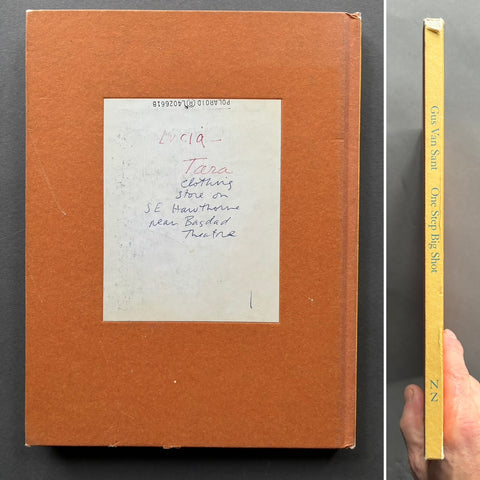 POLAROID (R) L4026618
Lucia -
Tara
clothing
store on
SE Hawthorne
near Bagdad
Theatre
Gus Van Sant One Step Big Shot
NZ